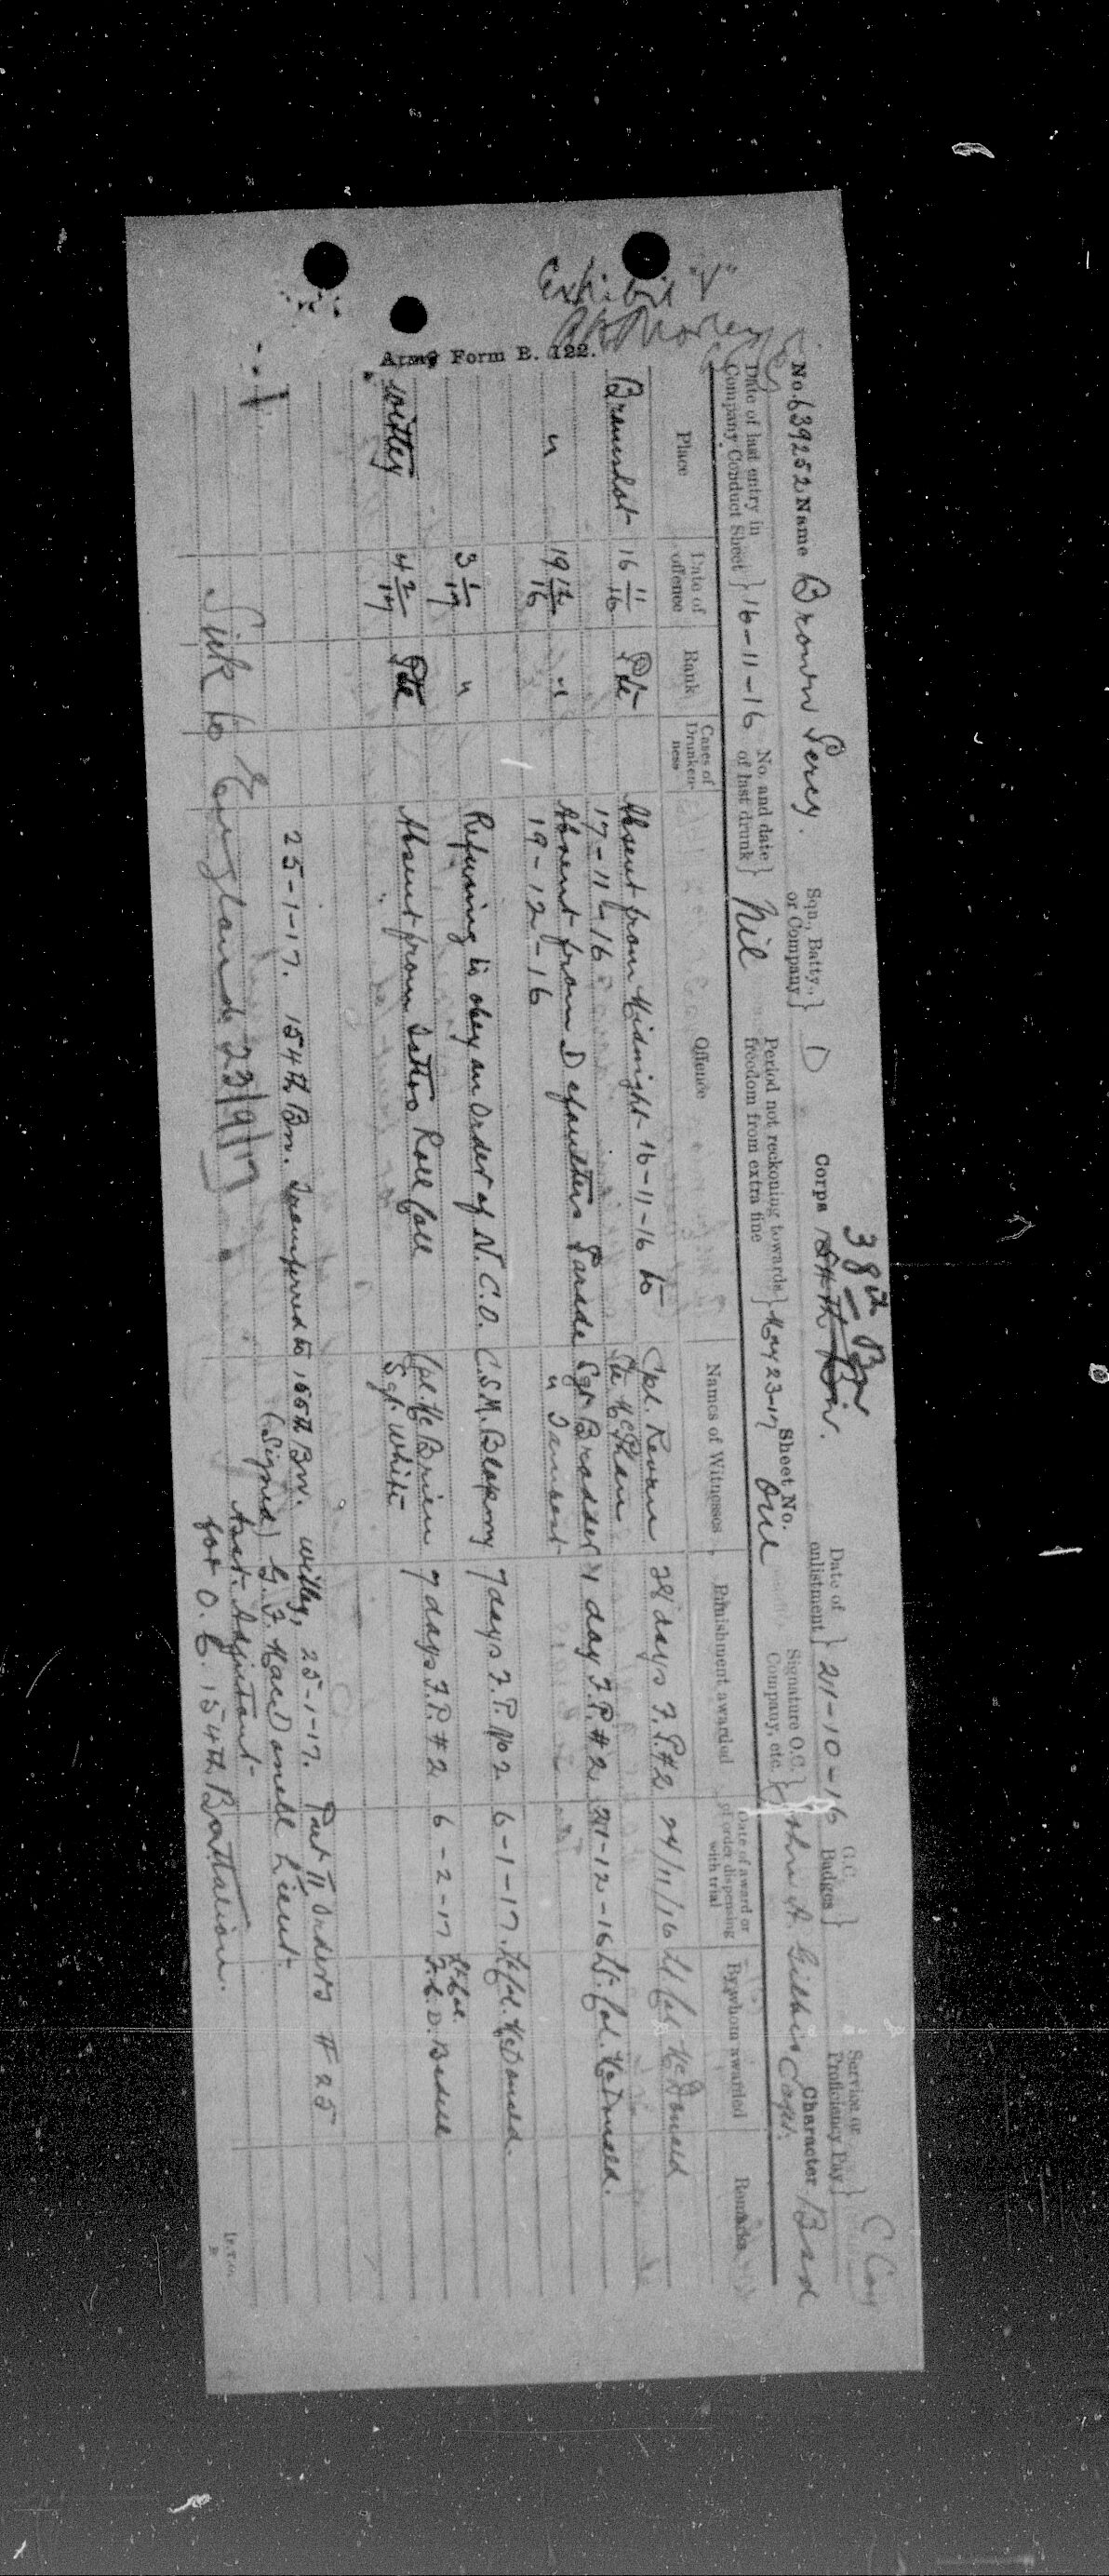 Exhibit "V"
Army Form B. 122.
38th Bn
C Coy
No. 639252 Name Brown Percy. Sqn., Batty., or Company } D Corps 154th Bn. Date of enlistment } 21-10-16 G.C. Badges } Service or Proficiency Pay }
Date of last entry in Company Conduct Sheet } 16-11-16 No. and date of last drunk } Nil Period not reckoning towards freedom from extra fine } May 23-17 Sheet No. One Signature O.C. Company, etc. } John A. Gilbert Capt. Character Bad
Place Date of offence Rank Cases of Drunkenness Offence Names of Witnesses Punishment awarded Date of award or of order dispensing with trial By whom awarded Remarks
Bramshot 16 11/16 Pte Absent from Midnight 16-11-16 to Cpl. Kevan 28 days F.P.#2 24/11/16 Lt Col McDonald
17-11-16 Pte McPhan
" 19 12/16 " Absent from Defaulters Parade Sgt Brodder 1 day F.P.#2 21-12-16 Lt. Col. McDonald.
19-12-16 "
3 1/17 " Refusing to obey an Order of N.C.O. C.S.M. 7 days F.P. No 2 6-1-17. Lt Col. McDonald.
Witley 4 2/17 Pte Absent from Tattoo Roll Call Cpl. McBrien 7 days F.P. #2 6-2-17 Lt Col.
Sgt. White F.C.D. Bedell
25-1-17. 154th Bn. Transferred to 156th Bn. Witley, 25-1-17. Part II Orders # 25
(Signed) G. F. MacDonell Lieut.
Asst. Adjutant
for O.C. 154th Battalion.
Sick to England 22/9/17